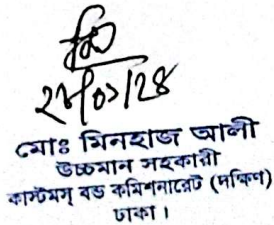 ২৮/০১/২৪
মোঃ মিনহাজ আলী
উচ্চমান সহকারী
কাস্টমস্ বন্ড কমিশনারেট (দক্ষিণ)
ঢাকা।